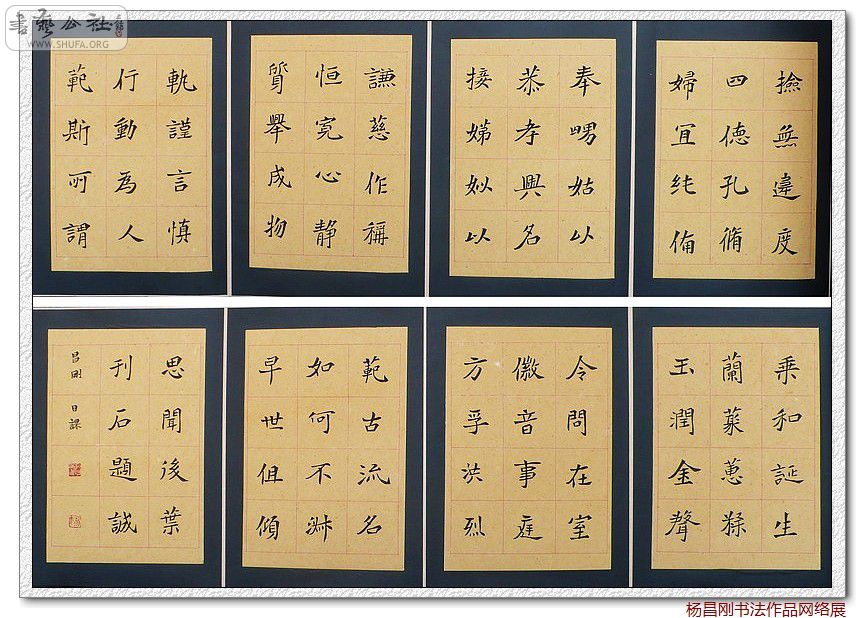 書藝公社
WWW.SHUFA.ORG
撿無違度
四德孔脩
婦宜純備
奉舅姑以
恭孝興名
接娣姒以
謙慈作稱
恒寬心靜
質舉成物
軌謹言慎
行動為人
範斯所謂
乘和誕生
蘭蕤蕙
玉潤金聲
令問在室
徽音事庭
方孚洪烈
範古流名
如何不淑
早世徂傾
思聞後葉
刊石題誠
昌剛 日課
杨昌刚书法作品网络展